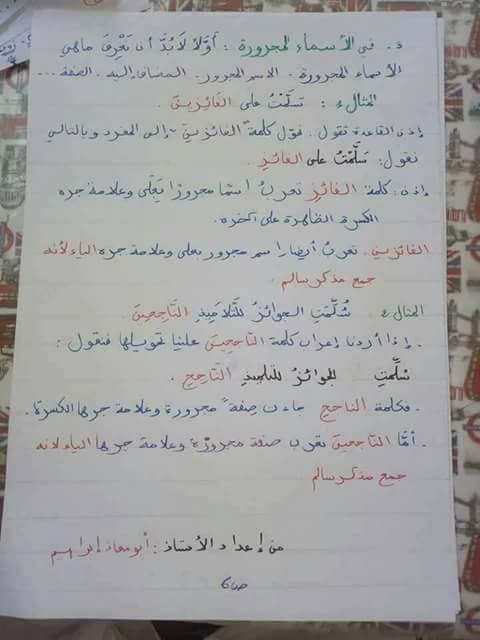 5. في الأسماء المجرورة : أوَّلاً لَابُدَّ أن نَعْرِفَ ماهي
الأسماء المجرورة . الاسم المجرور. المضاف إليه . الصفة ....
المثال 1 : سَلَّمْتُ على الفَائِزِينَ .
إذن القاعدة تقول : نحوّل كلمة "الفائزينَ" إلى المفرد وبالتالي
نقول : سَلَّمْتُ على الفَائِزِ .
إذن : كلمة الفَائِزِ تعربُ اسمًا مجرورًا بِعَلَى وعلامة جره
الكسرة الظاهرة على آخره .
الفائزين . تعربُ أيضا اسم مجرور بعلى وعلامة جره الياء لأنه
جمع مذكر سالم .
المثال 2 سُلِّمَتِ الجوائزُ لِلتَّلَامِيذِ النَّاجِحِينَ .
. إذا أردنا إعراب كلمة النَّاجِحِينَ علينا تحويلها فنقول :
سُلِّمَتِ الجوائزُ للتلميذِ النَّاجِحِ .
. فكلمة الناجحِ جاءت صِفَةً مجرورة وعلامة جرها الكسرة .
. أمَّا النَّاجِحِينَ تعرب صفة مجرورة وعلامة جرها الياء لأنه
جمع مذكر سالم
من إعداد الأستاذ : أبو معاذ إبراهيم
ص6